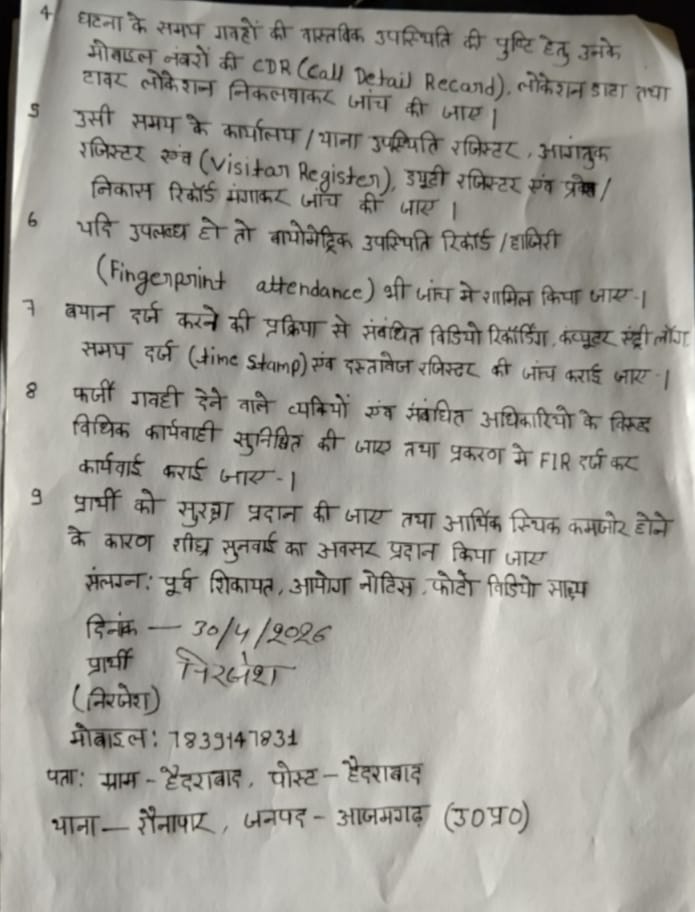 4 घटना के समय गवहों की वास्तविक उपस्थिति की पुष्टि हेतु उनके
मोबाइल नंबरों की CDR (Call Detail Record), लोकेशन डाटा तथा
टावर लोकेशन निकलवाकर जांच की जाए।
5 उसी समय के कार्यालय / थाना उपस्थिति रजिस्टर, आगंतुक
रजिस्टर एंव (Visitar Register), ड्युटी रजिस्टर एंव प्रवेश /
निकास रिकॉर्ड मंगाकर जांच की जाए।
6 यदि उपलब्ध हो तो बायोमेट्रिक उपस्थिति रिकॉर्ड / हाजिरी
(Fingerprint attendance) भी जांच मे शामिल किया जाए-।
7 बयान दर्ज करने की प्रक्रिया से संबंधित विडियो रिकॉर्डिंग, कंप्युटर एंट्री लॉग
समय दर्ज (time stamp) एंव दस्तावेज रजिस्टर की जांच कराई जाए-।
8 फर्जी गवही देने वाले व्यकियों एंव संबंधित अधिकारियो के विरूद्ध
विधिक कार्यवाही सुनिश्चित की जाए तथा प्रकरण मे FIR दर्ज कर
कार्यवाई कराई जाए-।
9 प्रार्थी को सुरक्षा प्रदान की जाए तथा आर्थिक स्थिक कमजोर होने
के कारण शीघ्र सुनवाई का अवसर प्रदान किया जाए
संलग्न: पूर्व शिकायत, आयोग नोटिस, फोटो विडियो साक्ष्य
दिनांक — 30/4/2026
प्रार्थी निरजेश
(निरजेश)
मोबाइल: 7839147831
पता: ग्राम - हैदराबाद, पोस्ट - हैदराबाद
थाना — रौनापार, जनपद - आजमगढ़ (उ0प्र0)